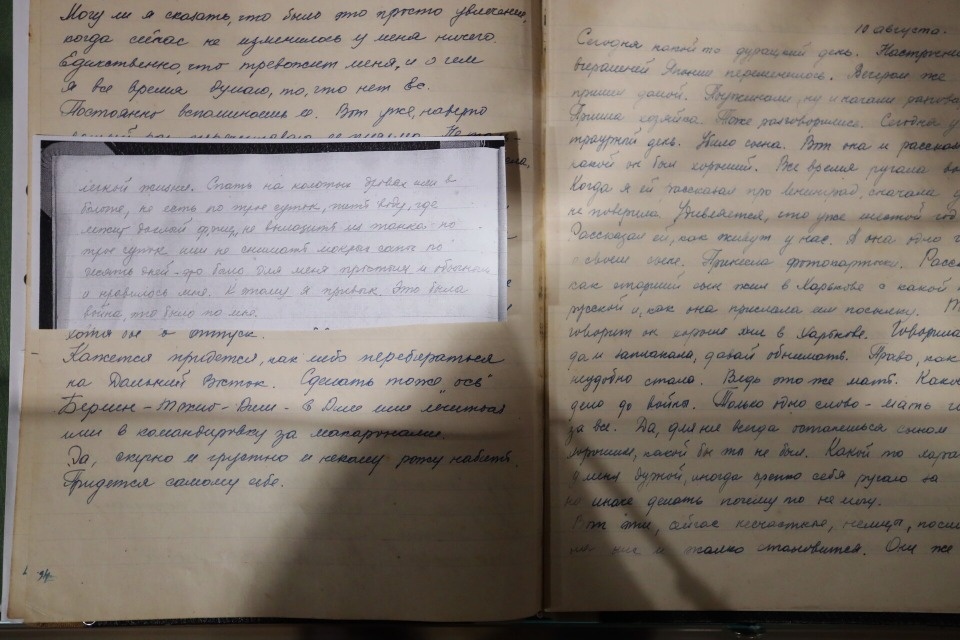 Могу ли я сказать, что было это просто увлечение,
когда сейчас не изменилось у меня ничего.
Единственно, что тревожит меня, и о чем
я все время думаю, то, что нет вс.
Постоянно вспоминаешь о. Вот уже, наверно
легкой жизни. Спать на колотых дровах или в
болоте, не есть по трое суток, пить воду, где
лежит дохлый фриц, не вылазить из танка по
трое суток или не снимать мокрых сапог по
десять дней - это было для меня простым и обычным
и нравилось мне. К этому я привык. Это была
война, это было по мне.
хотя бы о отпуск.
Кажется придется, как либо перебираться
на Дальний Восток. Сделать тоже, "ось"
Берлин - Токио - Рим - в Риме или
или в командировку за макаронами.
Да, скучно и грустно и некому рожу набить.
Придется самому себе.
94
10 августа.
Сегодня какой то дурацкий день. Настроение
вчерашней Японии переменилось. Вечером же
пришел домой. Поужинали, ну и начали разгова
Пришла хозяйка. Тоже разговорились. Сегодня у
траурный день. Убило сына. Вот она и расска
какой он был хороший. Все время ругала во
Когда я ей рассказал про Ленинград, сначала
не поверила. Удивляется, что уже шестой год
Рассказал ей, как живут у нас. А она одно
о своем сыне. Принесла фотокарточки. Расс
как старший сын жил в Харькове с какой
русской и, как она прислала им посылку.
говорит он хорошо жил в Харькове. Говорила
да и заплакала, давай обнимать. Право, как
неудобно стало. Ведь это же мать. Како
дело до войны. Только одно слово - мать
за все. Да, для нее всегда останешься сыном
хорошим, какой бы ты не был. Какой то
у меня дурной, иногда крепко себя ругаю за
но иначе делать почему то не могу.
Вот эти, сейчас несчастные, немцы, посм
на них и жалко становится. Они же